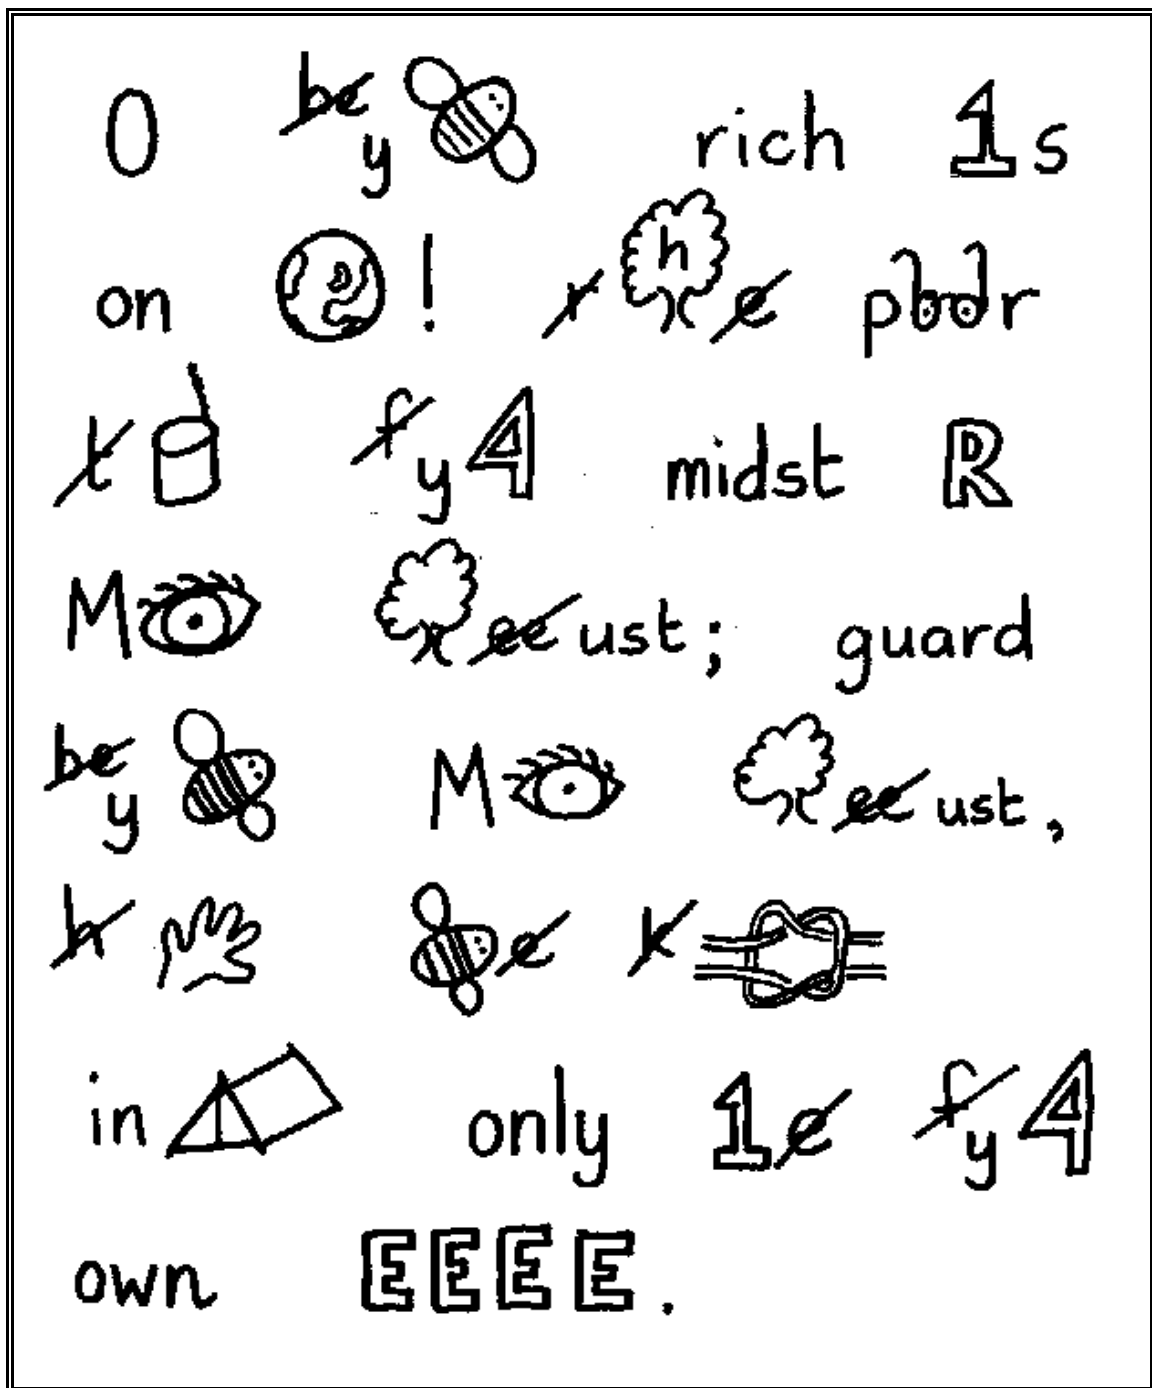 O be y rich 1s
on ! r h e poor
t f y 4 midst R
M ee ust; guard
be y M ee ust,
h e k
in only 1 e f y 4
own EEEE.